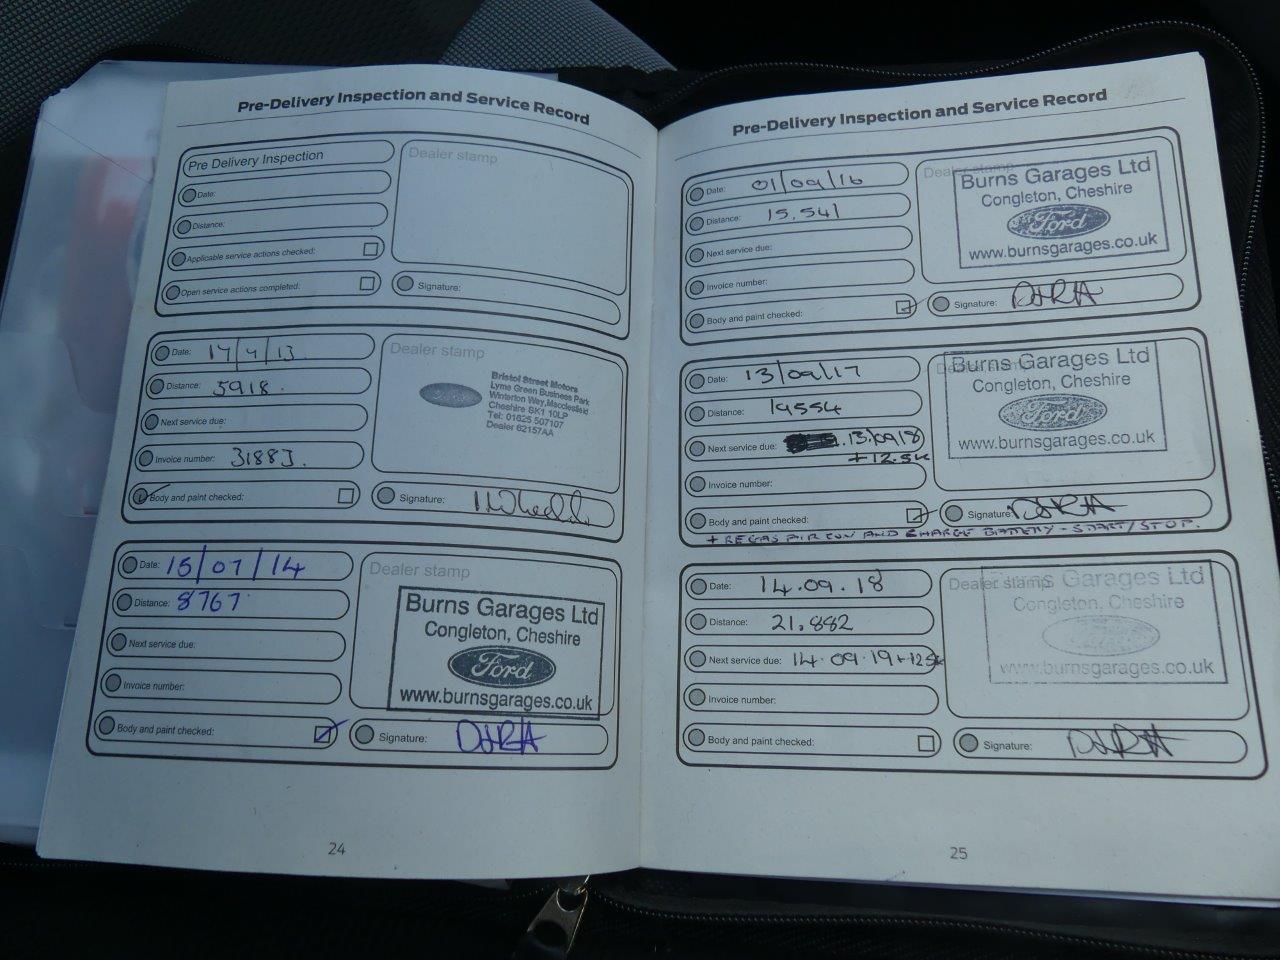 Pre-Delivery Inspection and Service Record
Pre Delivery Inspection
Date:
Distance:
Applicable service actions checked:
Open service actions completed:
Dealer stamp
Signature:
Date: 17/4/13
Distance: 5918.
Next service due:
Invoice number: 31883.
Body and paint checked:
Dealer stamp
Bristol Street Motors
Lyme Green Business Park
Winterton Way, Macclesfield
Cheshire SK1 10LP
Tel: 01625 507107
Dealer 62157AA
Signature:
Date: 15/07/14
Distance: 8767
Next service due:
Invoice number:
Body and paint checked:
Dealer stamp
Burns Garages Ltd
Congleton, Cheshire
Ford
www.burnsgarages.co.uk
Signature:
24
Pre-Delivery Inspection and Service Record
Date: 01/09/16
Distance: 15.541
Next service due:
Invoice number:
Body and paint checked:
Dealer stamp
Burns Garages Ltd
Congleton, Cheshire
Ford
www.burnsgarages.co.uk
Signature:
Date: 13/09/17
Distance: 19554
Next service due: 13/09/18
+12.5K
Invoice number:
Body and paint checked:
Dealer stamp
Burns Garages Ltd
Congleton, Cheshire
Ford
www.burnsgarages.co.uk
Signature:
+ REGAS AIR CON AND CHARGE BATTERY - START/STOP.
Date: 14.09.18
Distance: 21,882
Next service due: 14.09.19+12.5K
Invoice number:
Body and paint checked:
Dealer stamp
Burns Garages Ltd
Congleton, Cheshire
www.burnsgarages.co.uk
Signature:
25